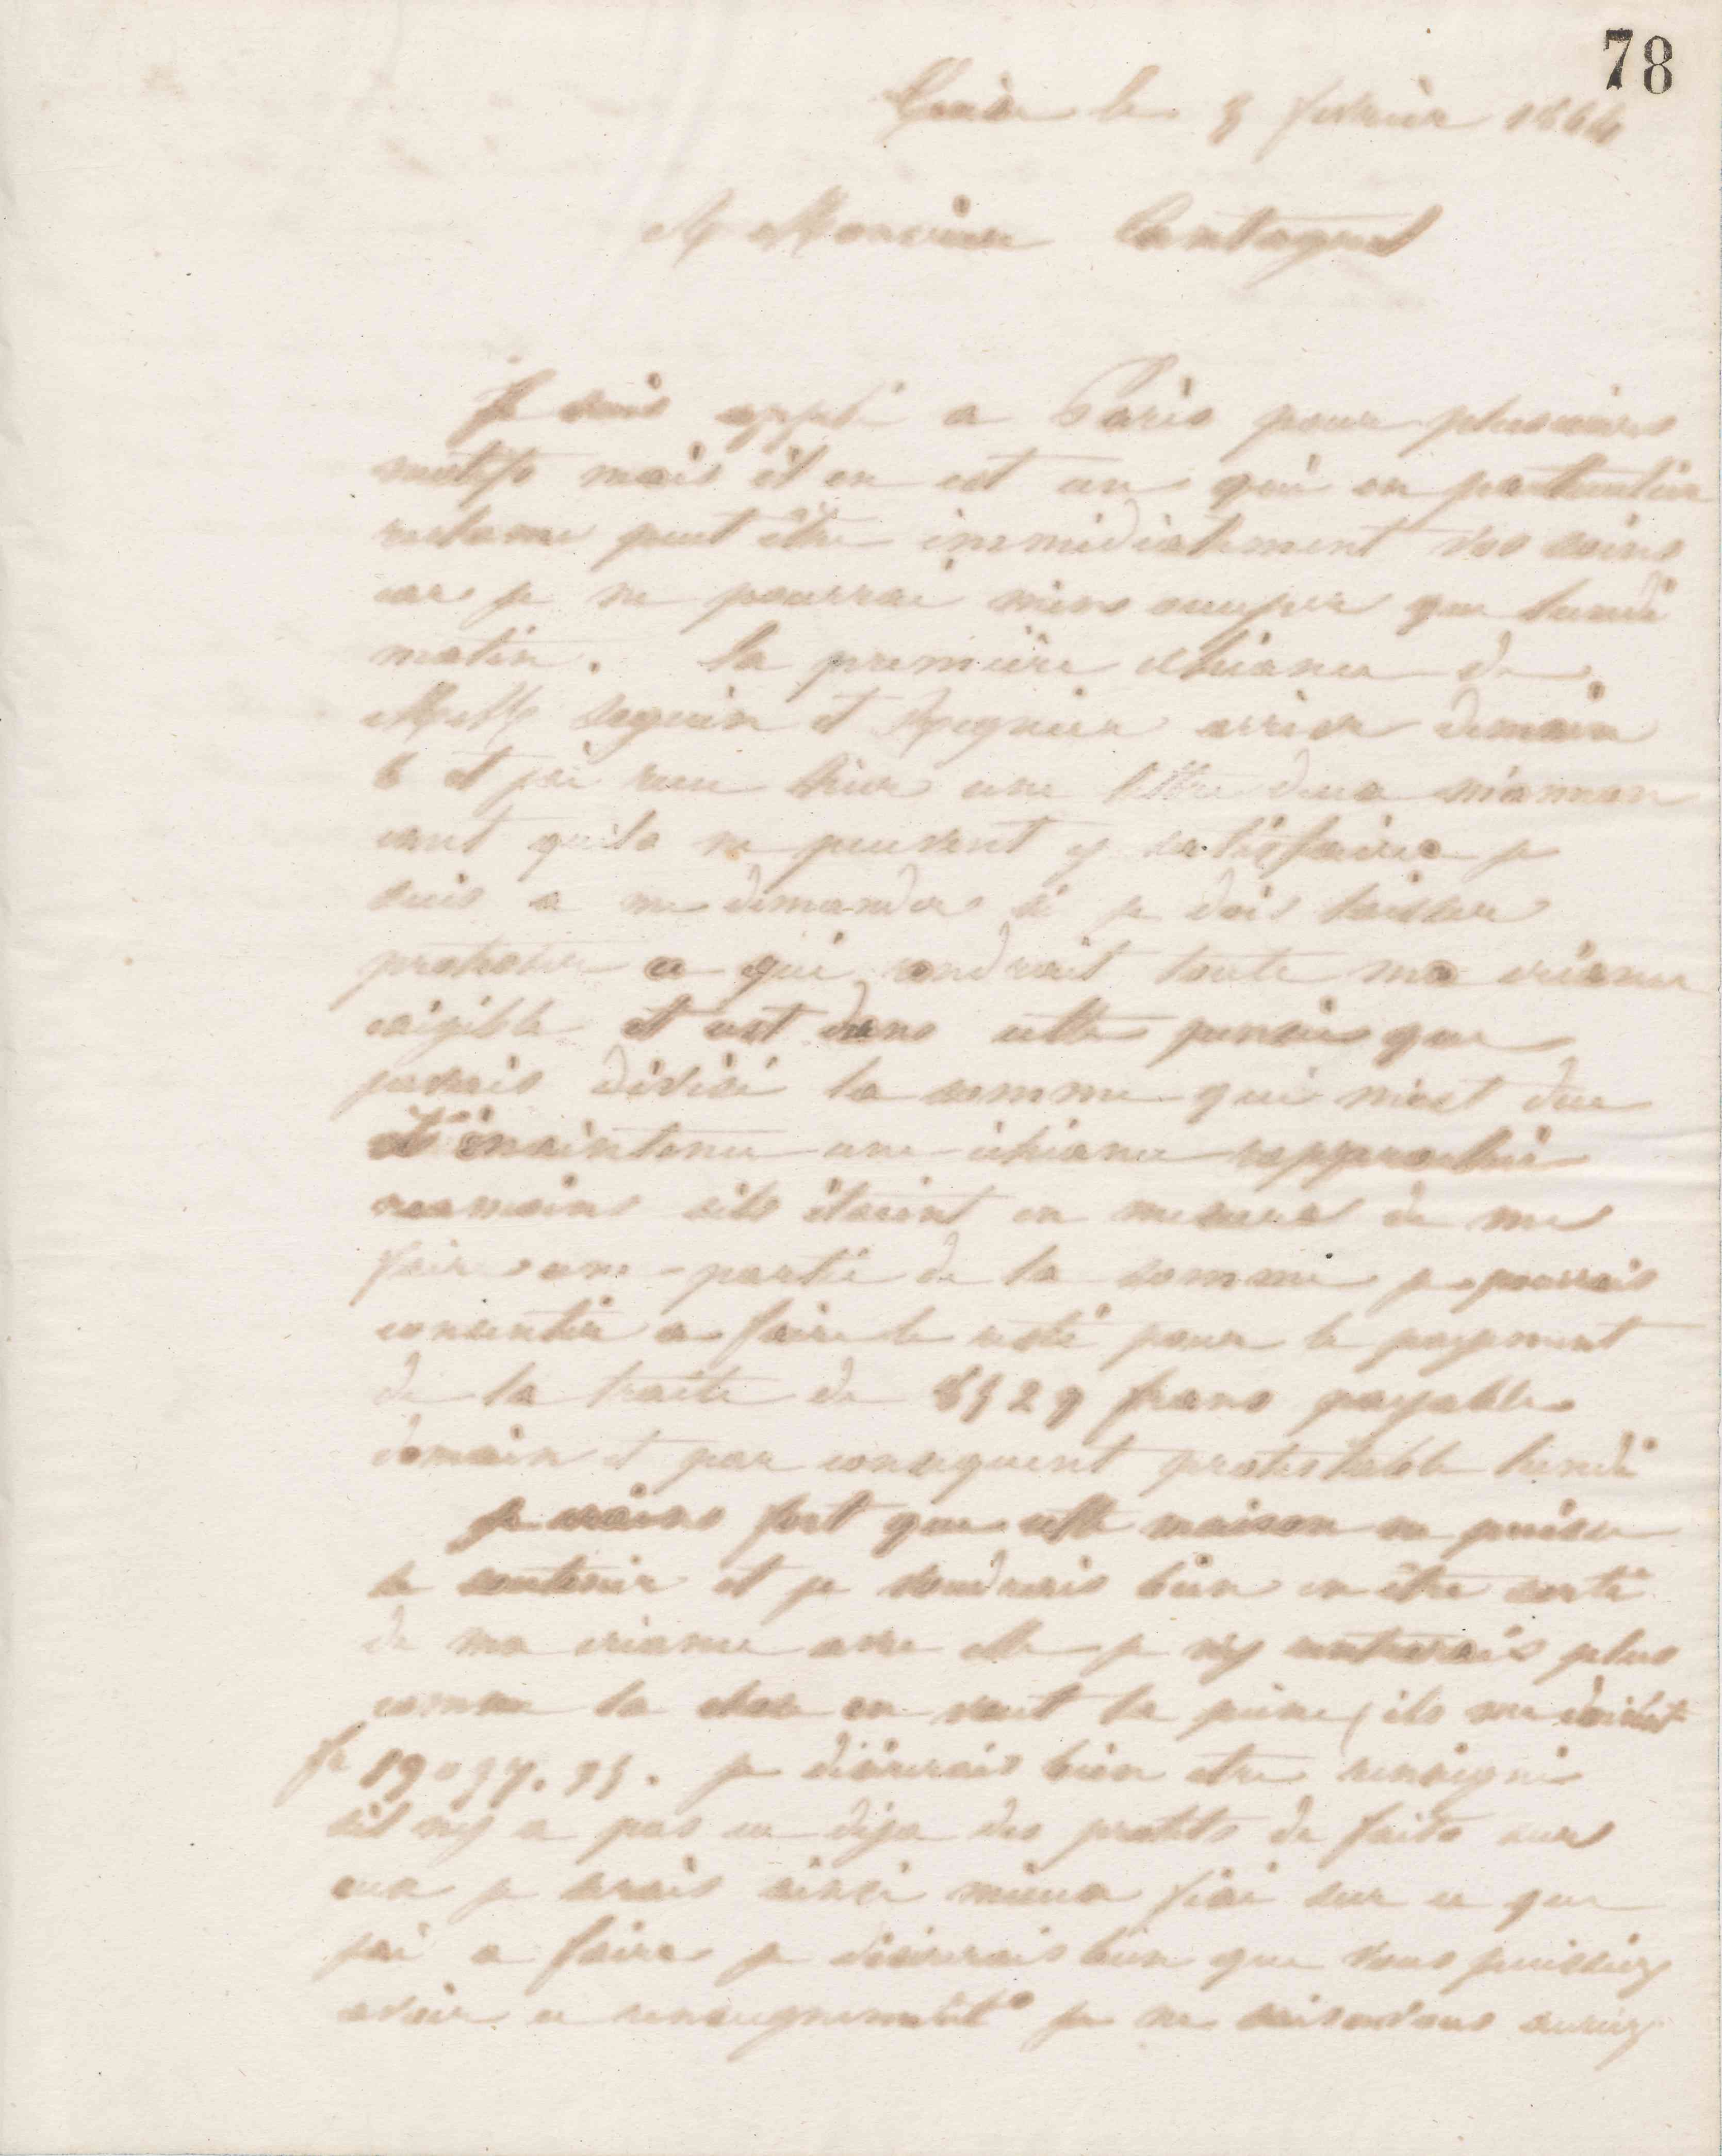 78
Guise le 5 fevrier 1864
A Monsieur Cantagrel
Je suis appelé a Paris pour plusieurs
motifs mais il en est un qui en particulier
reclame peut être immediatement vos soins
car je ne pourrai m'en occuper que lundi
matin. la première échéance de
MM Seguin et Regnier arrive demain
6 et j'ai recu hier une lettre d'eux m'annon
cant qu'ils ne peuvent y satisfaire je
suis a me demander si je dois laisser
protester ce qui rendrait toute ma créance
exigible et c'est dans cette pensée que
j'avais divisé la somme qui m'est due
et maintenu une échéance rapprochée
neanmoins s'ils étaient en mesure de me
faire une partie de la somme je pourrais
consentir a faire le reste pour le payement
de la traite de 8529 francs payable
demain et par consequent protestable lundi
Je crains fort que cette maison ne puisse
se soutenir et je voudrais bien en être sorti
de ma créance avec elle je n'y rentrerais plus
comme la chose en vaut la peine (ils me doivent
fr 19077.75. je désirerais bien etre renseigné
s'il n'y a pas eu deja des protets de faits sur
eux je serais ainsi mieux fixé sur ce que
j'ai a faire je désirerais bien que vous puissiez
avoir ce renseignement je ne sais si vous auriez